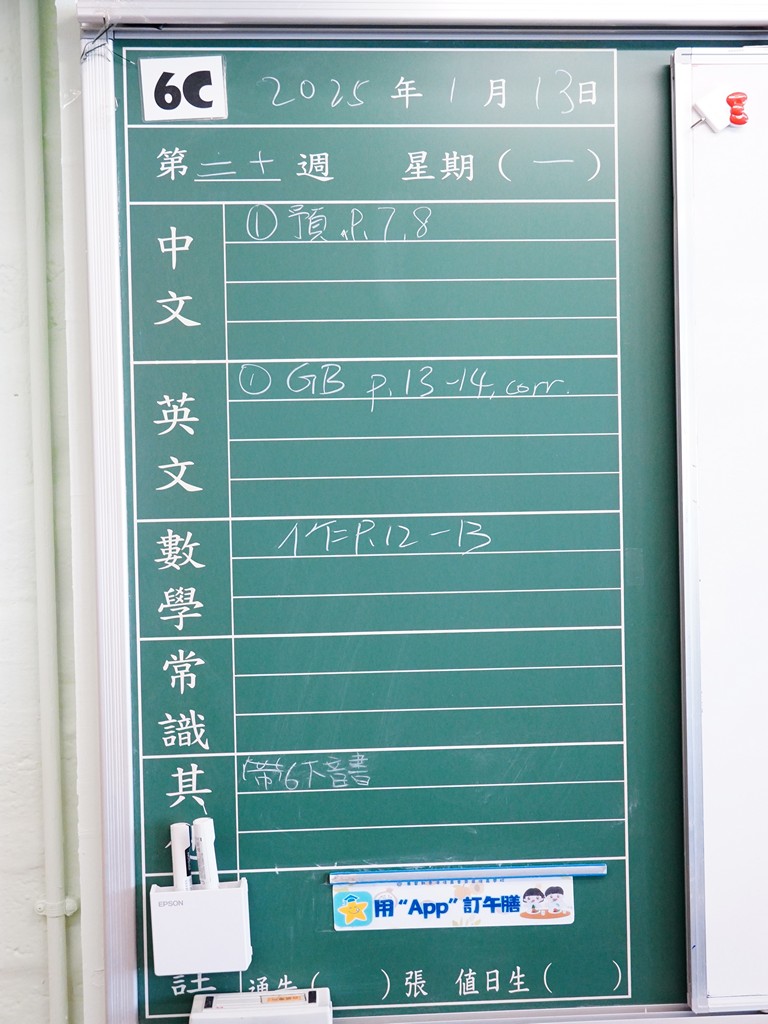 6C 2025年1月13日
第二十週 星期(一)
中文 ①預 P.7,8
英文 ① GB p.13-14, corr.
數學 作=P.12-13
常識
其 帶6下音書
EPSON
用“App”訂午膳
註 通告( )張 值日生( )